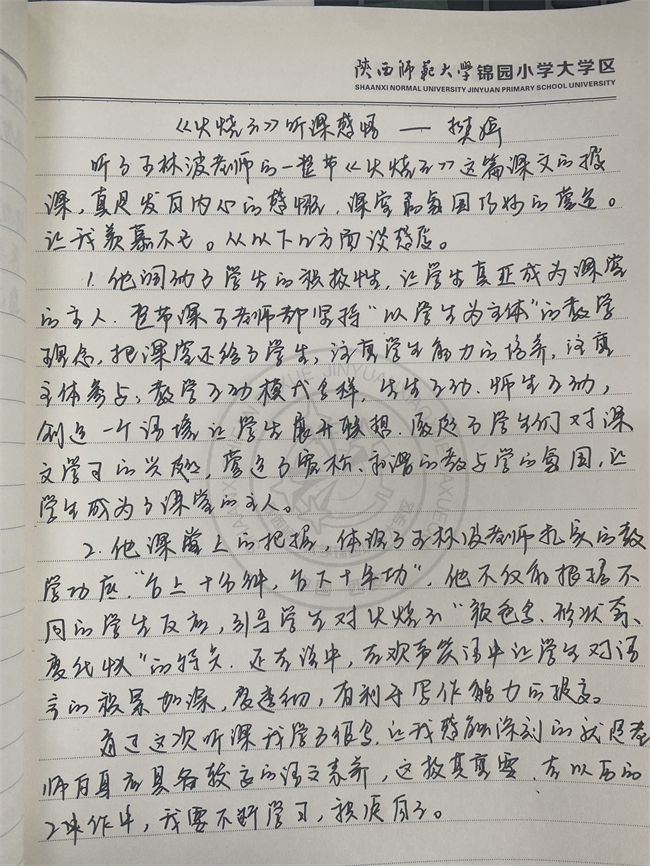 陕西师范大学锦园小学大学区
SHAANXI NORMAL UNIVERSITY JINYUAN PRIMARY SCHOOL UNIVERSITY
《火烧云》听课感悟 — 樊
听了王林波老师的一整节《火烧云》这篇课文的授
课,真是发自内心的感慨,课堂的氛围巧妙的营造。
让我羡慕不已。从以下几方面谈感启。
1. 他调动了学生的积极性,让学生真正成为课堂
的主人.整节课王老师都坚持"以学生为主体"的教学
理念,把课堂还给了学生,注重学生能力的培养,注重
主体参与,教学互动模式多样,生生互动、师生互动,
创造一个语境让学生展开联想.激起了学生们对课
文学习的兴趣,营造了宽松、和谐的教与学的氛围,让
学生成为了课堂的主人。
2. 他课堂上的把握,体现了王林波老师扎实的教
学功底."台上十分钟,台下十年功".他不仅能根据不
同的学生反应,引导学生对火烧云"颜色多、形状奇、
变化快"的特点.还在读中,在欢声笑语中让学生对语
言的积累加深,更透彻,有利于写作能力的提高。
通过这次听课我学了很多,让我感触深刻的就是老
师自身应具备较高的语文素养,这极其重要.在以后的
工作中,我要不断学习,